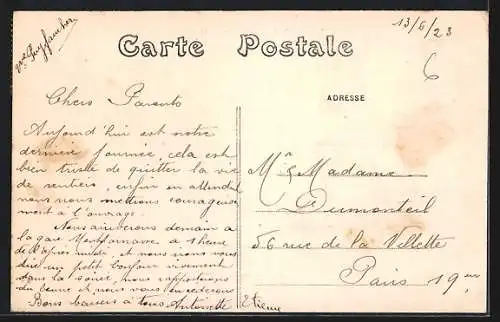 13/6/23
Carte Postale
6
ADRESSE
Chers Parents
Aujourd'hui est notre
dernière journée, cela est
bien triste de quitter la vie
de rentiers, enfin en attendant
nous nous mettons courageuse
ment à l'ouvrage.
Nous arriverons demain à
la gare Montparnasse à 1 heure
de l'après midi, et nous irons vous
dire un petit bonjour vivement
dans la soirée, nous apporterons
du beurre et nous vous en céderons
Bons baisers à tous Antoinette Etienne
Mr & Madame
Dumonteil
56 rue de la Villette
Paris 19me